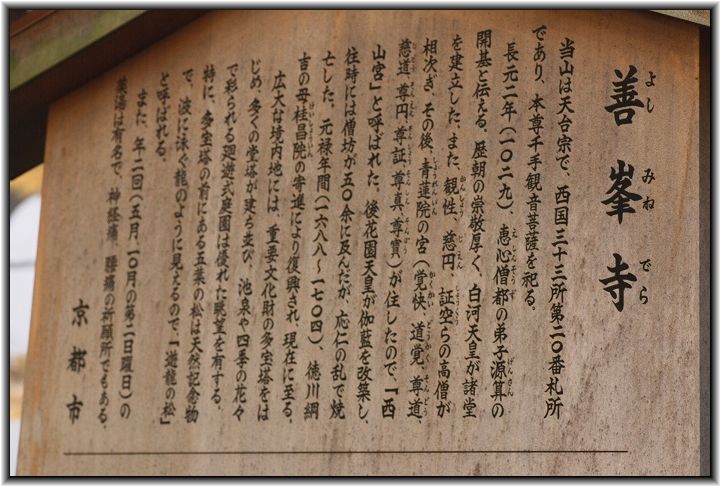 善峯寺
よしみねでら
当山は天台宗で、西国三十三所第二〇番札所
であり、本尊千手観音菩薩を祀る。
長元二年（一〇二九）、恵心僧都の弟子源算の
えしんそうず
げんさん
開基と伝える。歴朝の崇敬厚く、白河天皇が諸堂
を建立した。また、観性、慈円、証空らの高僧が
かんしょう
じえん
しょうくう
相次ぎ、その後、青蓮院の宮（覚快、道覚、尊道、
しょうれんいん
かくかい
どうかく
そんどう
慈道、尊円、尊証、尊真、尊寶）が住したので、「西
じどう
そんえん
そんしょう
そんしん
そんぽう
山宮」と呼ばれた。後花園天皇が伽藍を改築し、
往時には僧坊が五〇余に及んだが、応仁の乱で焼
亡した。元禄年間（一六八八～一七〇四）、徳川綱
吉の母桂昌院の寄進により復興され、現在に至る。
けいしょういん
広大な境内地には、重要文化財の多宝塔をは
じめ、多くの堂塔が建ち並び、池泉や四季の花々
で彩られる廻遊式庭園は優れた眺望を有する。
特に、多宝塔の前にある五葉の松は天然記念物
で、波に泳ぐ龍のように見えるので、「遊龍の松」
と呼ばれる。
また、年二回（五月、一〇月の第二日曜日）の
薬湯は有名で、神経痛、腰痛の祈願所でもある。
京都市